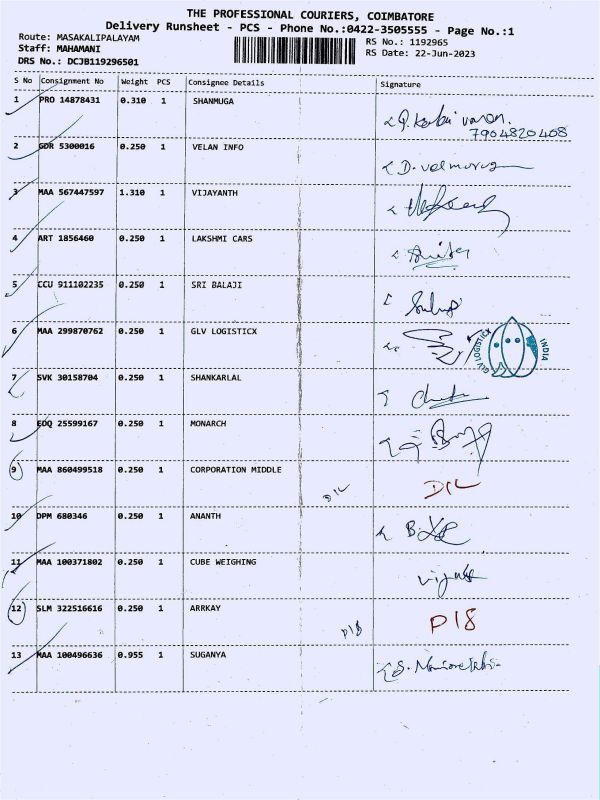 THE PROFESSIONAL COURIERS, COIMBATORE
Delivery Runsheet - PCS - Phone No.:0422-3505555 - Page No.:1
Route: MASAKALIPALAYAM
Staff: MAHAMANI
DRS No.: DCJB119296501
RS No.: 1192965
RS Date: 22-Jun-2023
S No Consignment No Weight PCS Consignee Details Signature
1 PRO 14878431 0.310 1 SHANMUGA
7904820408
2 GDR 5300016 0.250 1 VELAN INFO
3 MAA 567447597 1.310 1 VIJAYANTH
4 ART 1856460 0.250 1 LAKSHMI CARS
5 CCU 911102235 0.250 1 SRI BALAJI
6 MAA 299870762 0.250 1 GLV LOGISTICX
GLV LOGISTICX INDIA
7 SVK 30158704 0.250 1 SHANKARLAL
8 EDQ 25599167 0.250 1 MONARCH
9 MAA 860499518 0.250 1 CORPORATION MIDDLE
D/L D/L
10 DPM 680346 0.250 1 ANANTH
11 MAA 100371802 0.250 1 CUBE WEIGHING
12 SLM 322516616 0.250 1 ARRKAY
P18 P18
13 MAA 100496636 0.955 1 SUGANYA